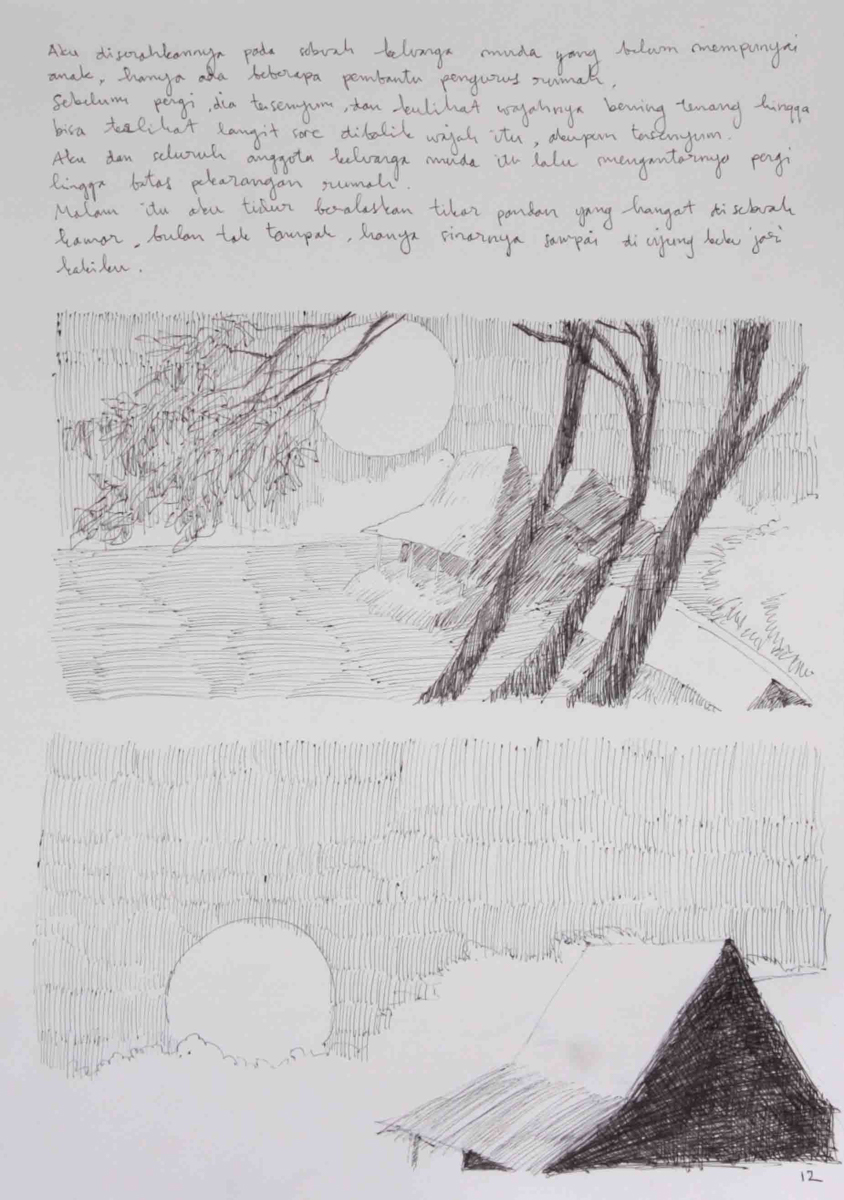 Aku diserahkannya pada sebuah keluarga muda yang belum mempunyai
anak, hanya ada beberapa pembantu pengurus rumah.
Sebelum pergi, dia tersenyum, dan kulihat wajahnya bening tenang hingga
bisa terlihat langit sore dibalik wajah itu, akupun tersenyum.
Aku dan seluruh anggota keluarga muda itu lalu mengantarnya pergi
hingga batas pekarangan rumah.
Malam itu aku tidur beralaskan tikar pandan yang hangat disebuah
kamar, bulan tak tampak, hanya sinarnya sampai di ujung buku jari
kakiku.
12